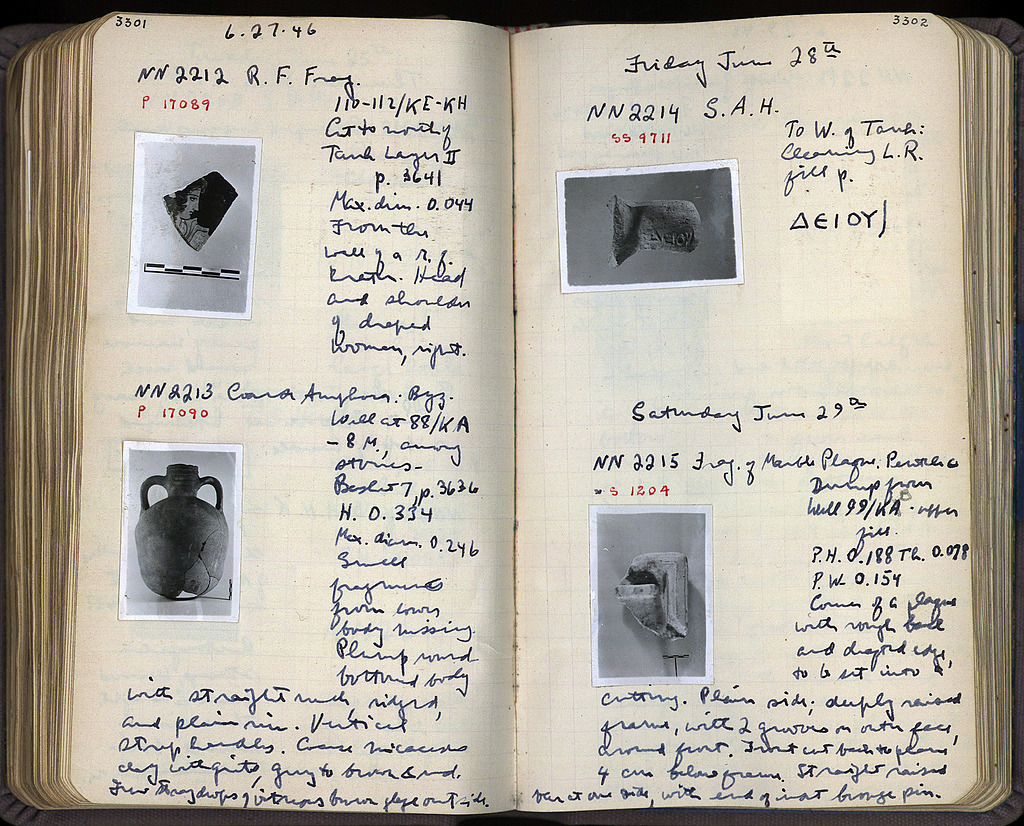 3301
6.27.46
NN 2212 R. F. Frag.
P 17089
110-112/KE-KH
Cut to north of
Tank Layer II
p. 3641
Max. dim. 0.044
From the
wall of a r. f.
krater. Head
and shoulders
of draped
woman, right.
NN 2213 Coarse Amphora: Byz.
P 17090
Well at 88/KA
- 8 M., among
stones -
Basket 7, p. 3636
H. 0.334
Max. diam. 0.246
Small
fragments
from lower
body missing.
Plump round
bottomed body
with straight neck, ridged,
and plain rim. Vertical
strap handles. Coarse micaceous
clay with grits, grey to brown & red.
Few stray drops of vitreous brown glaze outside.
3302
Friday June 28th
NN 2214 S. A. H.
SS 9711
To W. of Tank:
Cleaning L.R.
fill p.
ΔΕΙΟΥ
ΔΕΙΟΥ
Saturday June 29th
NN 2215 Frag. of Marble Plaque. Pentelic
S 1204
Dump from
Well 99/KA - upper
fill.
P.H. 0.188 Th. 0.078
P.W. 0.154
Corner of a plaque
with rough back
and edge,
to be set into a
cutting. Plain side: deply raised
frame, with 2 grooves on outer face,
around front. Front cut back to plane
4 cm below frame. Straight raised
bar at one side, with end of inset bronze pin.